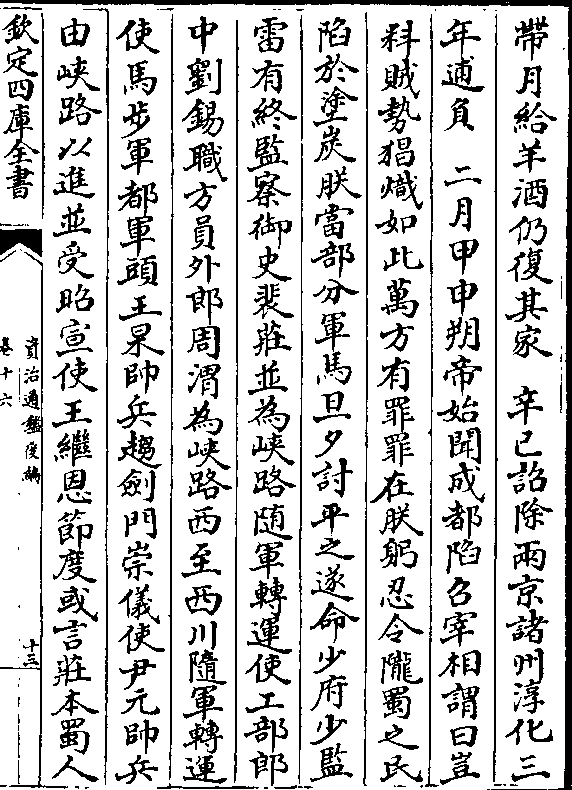 帶月給羊酒仍復其家　辛巳詔除兩京諸州淳化三
年逋負　二月甲申朔帝始聞成都陷召宰相謂曰豈
料賊勢猖熾如此萬方有罪罪在朕躬忍令隴蜀之民
陷於塗炭朕當部分軍馬旦夕討平之遂命少府少監
雷有終監察御史裴莊並為峽路随軍轉運使工部郎
中劉錫職方員外郎周渭為峽路西至西川隨軍轉運
使馬步軍都軍頭王杲帥兵趨劍門崇儀使尹元帥兵
由峽路以進並受昭宣使王繼恩節度或言莊本蜀人
欽定四庫全書
資治通鑑後編
卷十六
十三